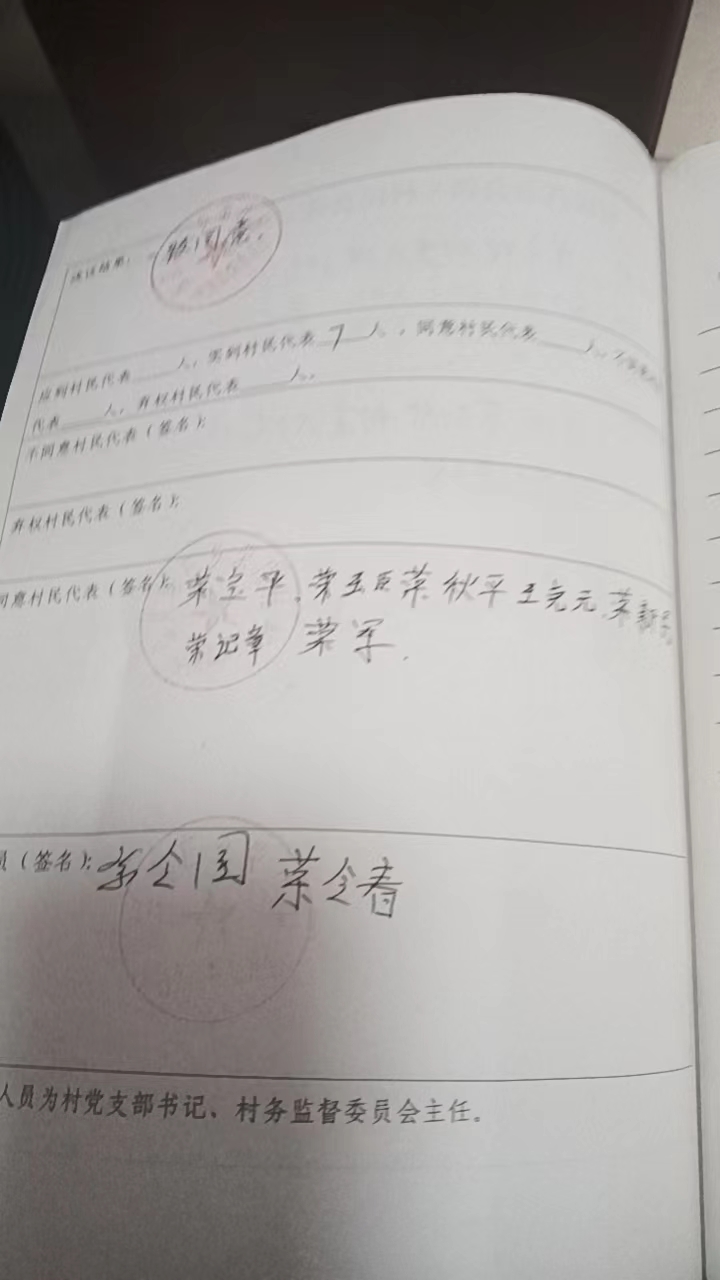 决议结果: 同意.
应到村民代表____人,实到村民代表 7 人,同意村民代表____人,不同意村民
代表____人,弃权村民代表____人。
不同意村民代表(签名):
弃权村民代表(签名):
同意村民代表(签名): 荣宝平. 荣玉臣 荣秋平 王克元. 荣新
荣记章 荣军.
员(签名): 全国 荣全春
人员为村党支部书记、村务监督委员会主任。